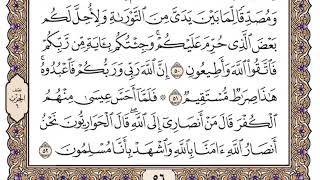 وَمُصَدِّقًا لِّمَا بَيْنَ يَدَيَّ مِنَ التَّوْرَىٰةِ وَلِأُحِلَّ لَكُم
بَعْضَ الَّذِي حُرِّمَ عَلَيْكُمْ ۚ وَجِئْتُكُم بِـَٔايَةٍ مِّن رَّبِّكُمْ
فَاتَّقُوا۟ اللَّهَ وَأَطِيعُونِ ٥٠ إِنَّ اللَّهَ رَبِّي وَرَبُّكُمْ فَاعْبُدُوهُ ۗ
هَٰذَا صِرَٰطٌ مُّسْتَقِيمٌ ٥١ ۞ فَلَمَّآ أَحَسَّ عِيسَىٰ مِنْهُمُ
الْكُفْرَ قَالَ مَنْ أَنصَارِيٓ إِلَى اللَّهِ ۖ قَالَ الْحَوَارِيُّونَ نَحْنُ
أَنصَارُ اللَّهِ ءَامَنَّا بِاللَّهِ وَاشْهَدْ بِأَنَّا مُسْلِمُونَ ٥٢
٥٦